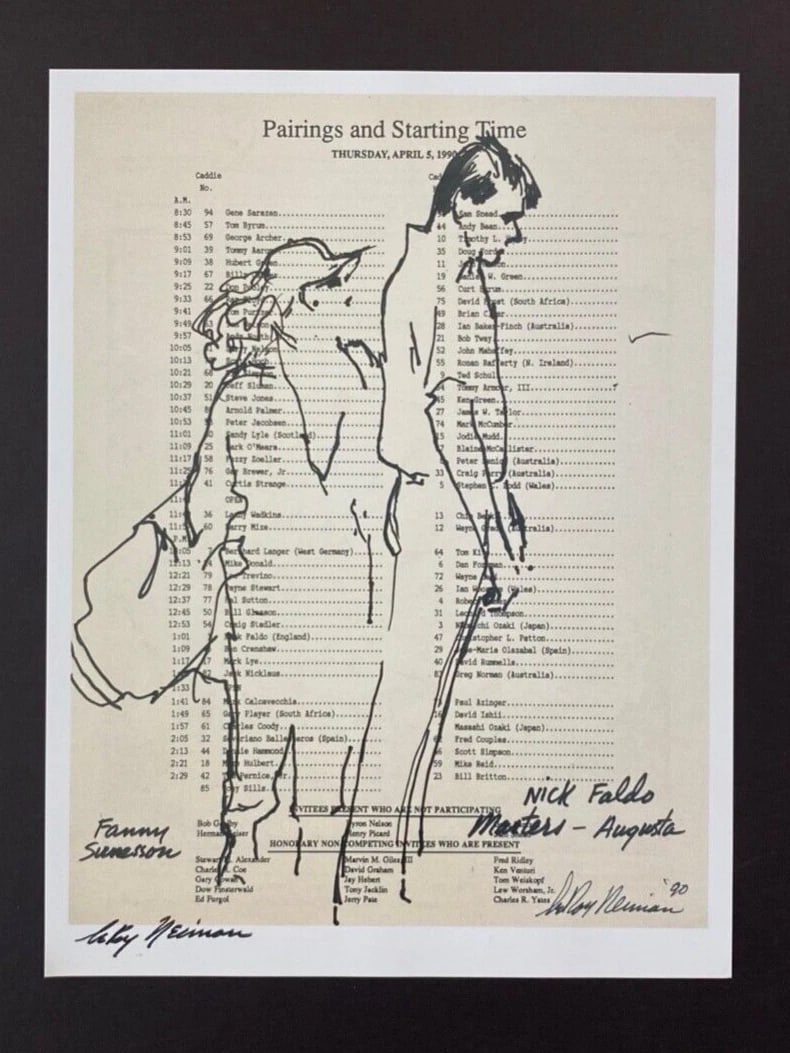 Pairings and Starting Time
THURSDAY, APRIL 5, 1990
Caddie
No.
A.M.
8:30 94 Gene Sarazen Sam Snead
8:45 57 Tom Byrum 44 Andy Bean
8:53 69 George Archer 10 Timothy L.
9:01 39 Tommy Aaron 35 Doug Ford
9:09 38 Hubert Green 11
9:17 67 Billy 19 W. Green
9:25 22 Don 56 Curt Byrum
9:33 66 75 David Frost (South Africa)
9:41 Tom 49 Brian
9:49 28 Ian Baker-Finch (Australia)
9:57 21 Bob Tway
10:05 Nelson 52 John Mahaffey
10:13 55 Ronan Rafferty (N. Ireland)
10:21 68 9 Ted Schulz
10:29 20 Jeff Sluman Tommy Armour, III
10:37 51 Steve Jones 45 Ken Green
10:45 Arnold Palmer 27 James W. Taylor
10:53 Peter Jacobsen 74 Mark McCumber
11:01 Sandy Lyle (Scotland) 15 Jodie Mudd
11:09 25 Mark O'Meara Blaine McCallister
11:17 58 Fuzzy Zoeller Peter Senior (Australia)
11:25 76 Gay Brewer, Jr 33 Craig Parry (Australia)
41 Curtis Strange 5 Stephen C. Dodd (Wales)
OPEN
36 Lanny Wadkins 13 Chip
60 Larry Mize 12 Wayne Grady (Australia)
P.M.
12:05 Bernhard Langer (West Germany) 64 Tom
12:13 Mike Donald 6 Dan
12:21 79 Trevino 72 Wayne
12:29 78 Payne Stewart 26 Ian Woosnam (Wales)
12:37 77 Hal Sutton 4
12:45 50 Bill Glasson 31 Leonard Thompson
12:53 54 Craig Stadler 3 Ozaki (Japan)
1:01 Nick Faldo (England) 47 Christopher L. Patton
1:09 Ben Crenshaw 29 Jose-Maria Olazabal (Spain)
1:17 Mark Lye 40 David Rummells
Jack Nicklaus Greg Norman (Australia)
1:33 OPEN
1:41 84 Mark Calcavecchia Paul Azinger
1:49 65 Gary Player (South Africa) David Ishii
1:57 61 Charles Coody Masashi Ozaki (Japan)
2:05 32 Severiano Ballesteros (Spain) Fred Couples
2:13 44 Donnie Hammond Scott Simpson
2:21 18 Mike Hulbert 59 Mike Reid
2:29 42 Pernice, Jr. 23 Bill Britton
85 Sills
INVITEES PRESENT WHO ARE NOT PARTICIPATING
Bob Goalby Byron Nelson
Herman Keiser Henry Picard
HONORARY NON-COMPETING INVITEES WHO ARE PRESENT
Stewart M. Alexander Marvin M. Giles, III Fred Ridley
Charles R. Coe David Graham Ken Venturi
Gary Cowan Jay Hebert Tom Weiskopf
Dow Finsterwald Tony Jacklin Lew Worsham, Jr.
Ed Furgol Jerry Pate Charles R. Yates
NICK Faldo
Masters - Augusta
Fanny
Sunesson
LeRoy Neiman '90
LeRoy Neiman